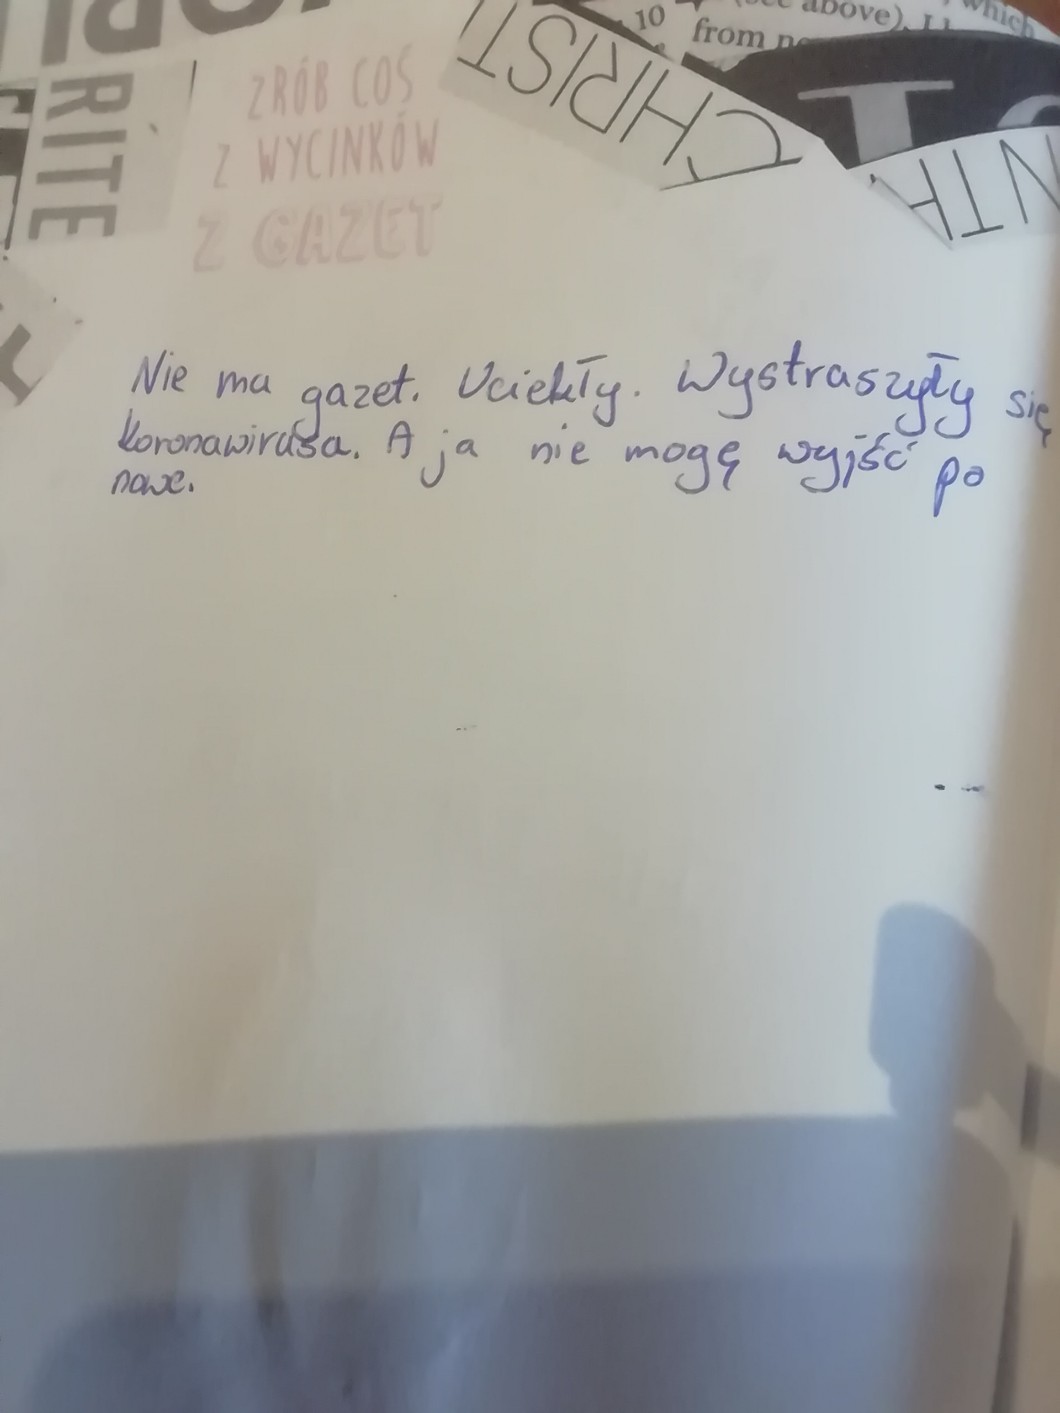 10
above)
which
from
RITE
CHRISTI
NTA
ZRÓB COŚ
Z WYCINKÓW
Z GAZET
Nie ma gazet. Uciekły. Wystraszyły się
koronawirusa. A ja nie mogę wyjść po
nowe.